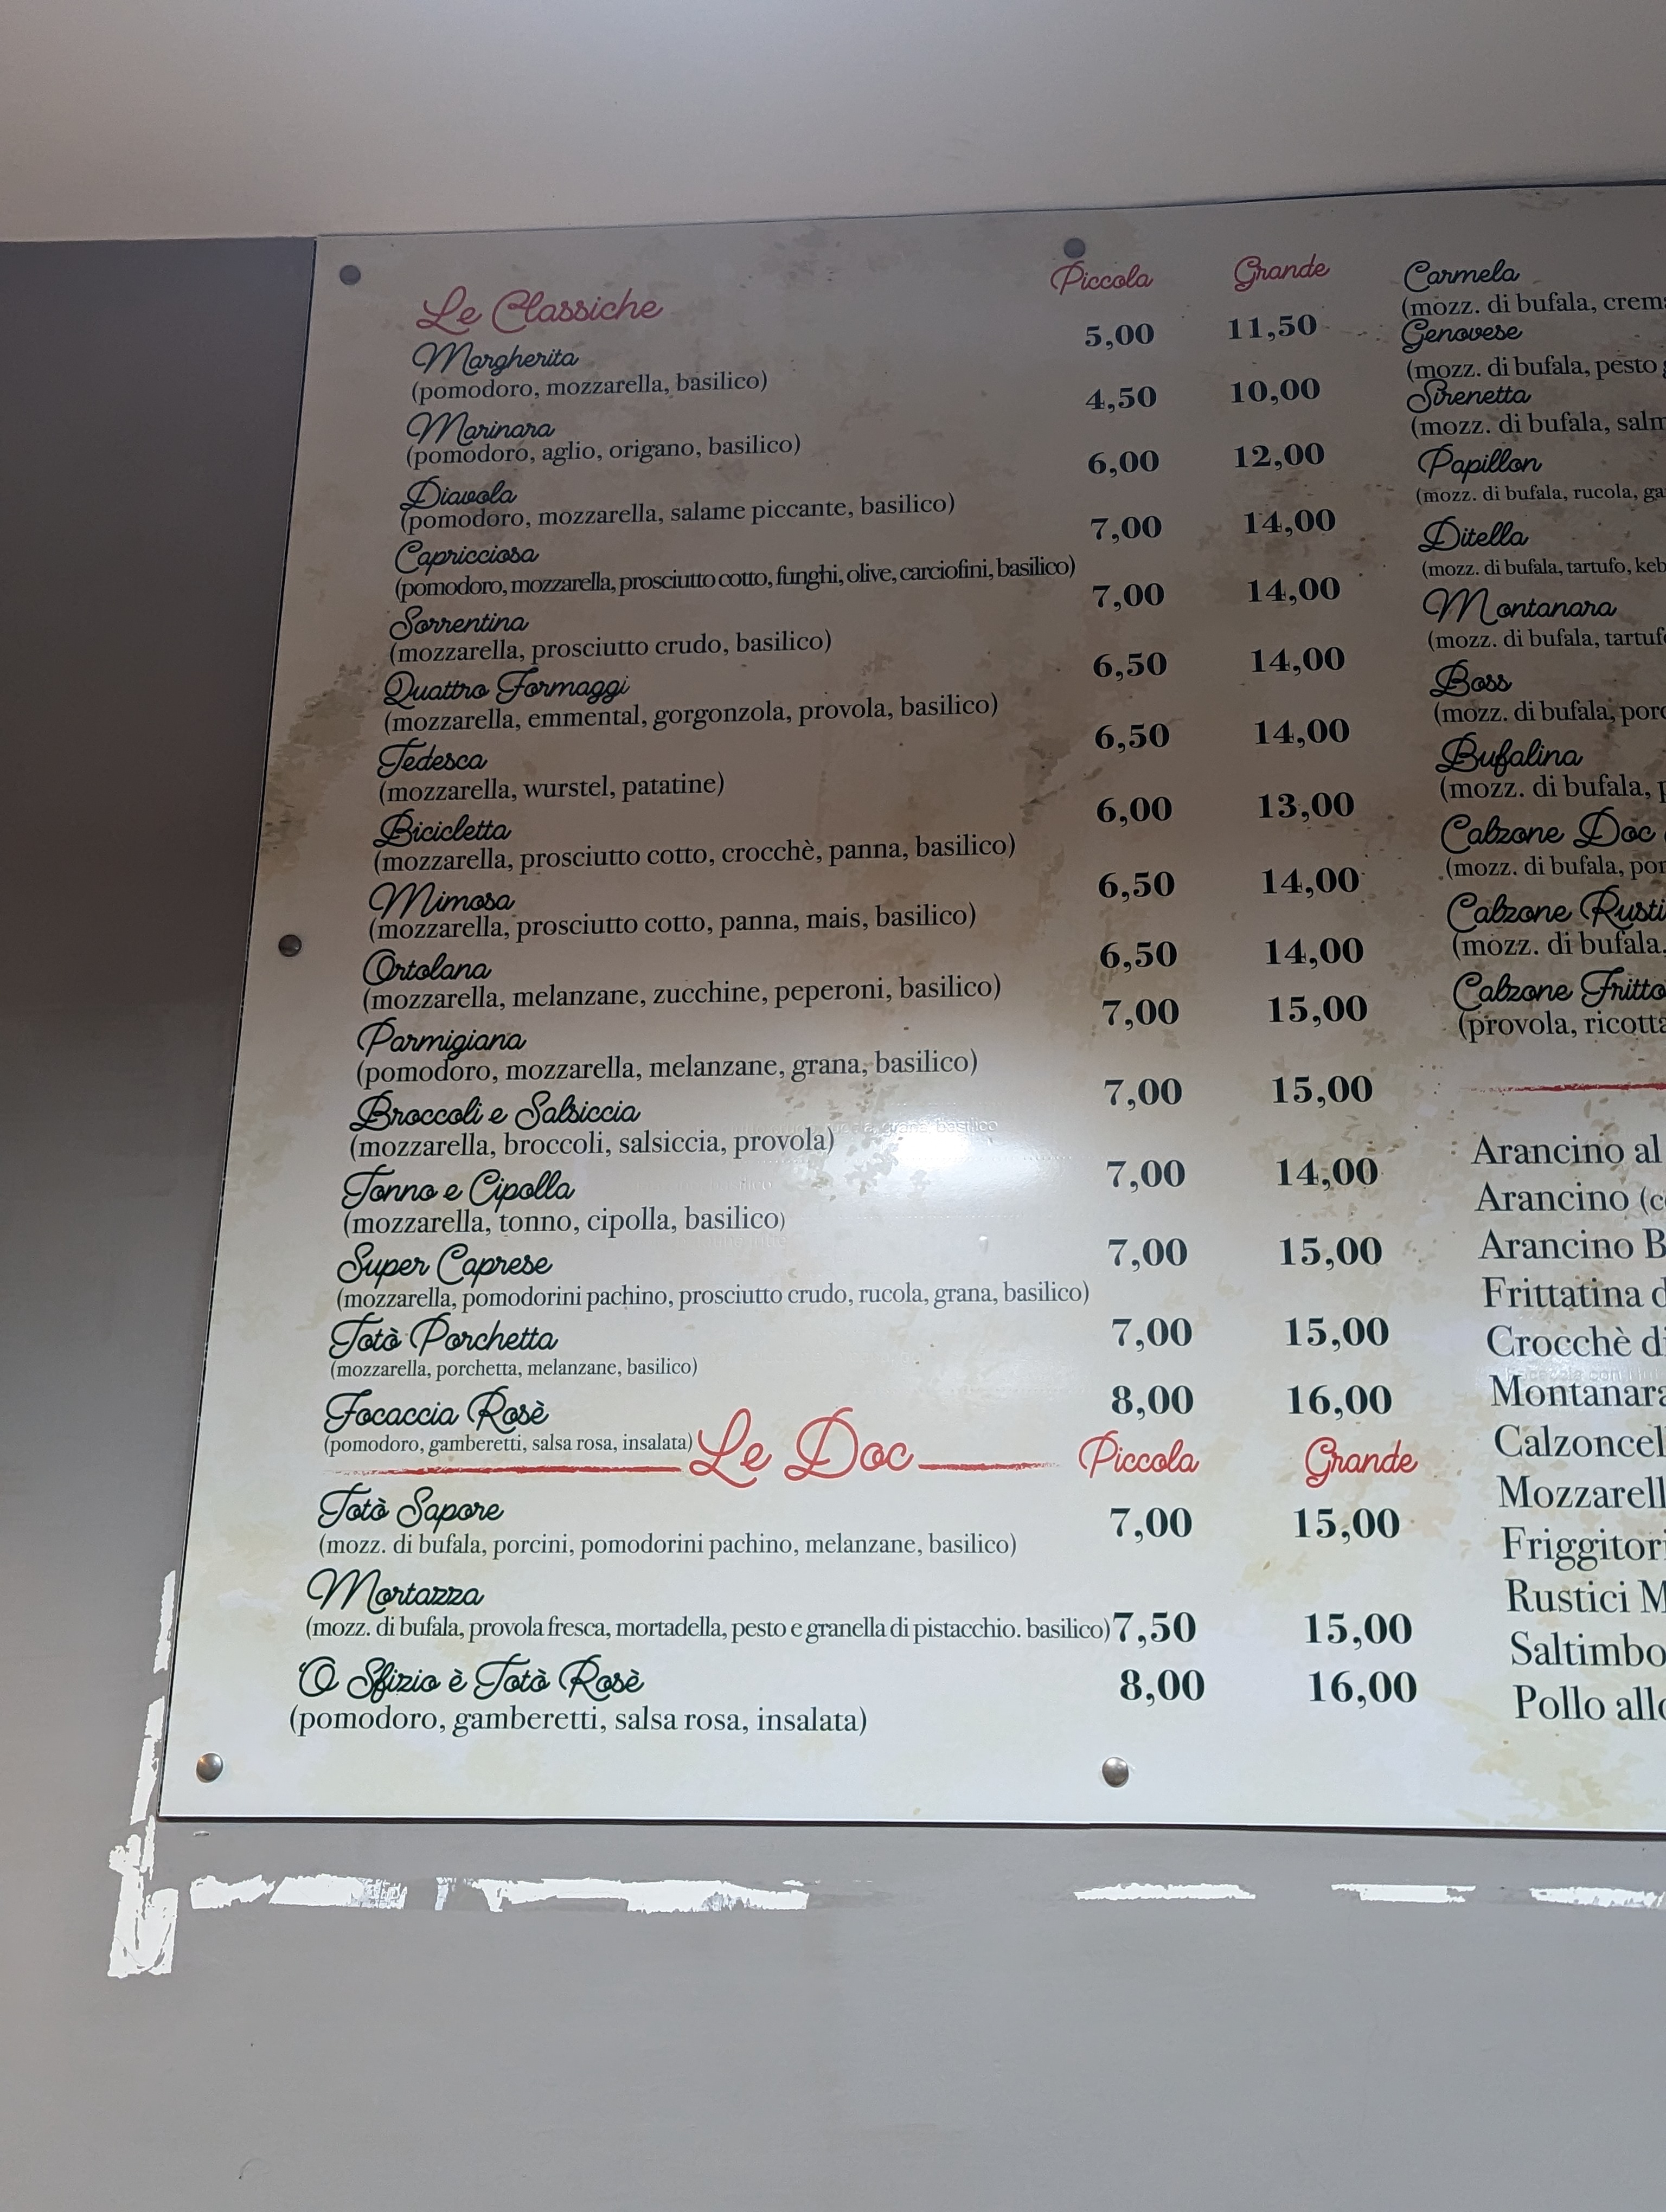 Le Classiche Piccola Grande
Margherita 5,00 11,50
(pomodoro, mozzarella, basilico)
Marinara 4,50 10,00
(pomodoro, aglio, origano, basilico)
Diavola 6,00 12,00
(pomodoro, mozzarella, salame piccante, basilico)
Capricciosa 7,00 14,00
(pomodoro, mozzarella, prosciutto cotto, funghi, olive, carciofini, basilico)
Sorrentina 7,00 14,00
(mozzarella, prosciutto crudo, basilico)
Quattro Formaggi 6,50 14,00
(mozzarella, emmental, gorgonzola, provola, basilico)
Tedesca 6,50 14,00
(mozzarella, wurstel, patatine)
Bicicletta 6,00 13,00
(mozzarella, prosciutto cotto, crocchè, panna, basilico)
Mimosa 6,50 14,00
(mozzarella, prosciutto cotto, panna, mais, basilico)
Ortolana 6,50 14,00
(mozzarella, melanzane, zucchine, peperoni, basilico)
Parmigiana 7,00 15,00
(pomodoro, mozzarella, melanzane, grana, basilico)
Broccoli e Salsiccia 7,00 15,00
(mozzarella, broccoli, salsiccia, provola)
Tonno e Cipolla 7,00 14,00
(mozzarella, tonno, cipolla, basilico)
Super Caprese 7,00 15,00
(mozzarella, pomodorini pachino, prosciutto crudo, rucola, grana, basilico)
Totò Porchetta 7,00 15,00
(mozzarella, porchetta, melanzane, basilico)
Focaccia Rosè 8,00 16,00
(pomodoro, gamberetti, salsa rosa, insalata)
Le Doc Piccola Grande
Totò Sapore 7,00 15,00
(mozz. di bufala, porcini, pomodorini pachino, melanzane, basilico)
Mortazza
(mozz. di bufala, provola fresca, mortadella, pesto e granella di pistacchio. basilico) 7,50 15,00
'O Sfizio è Totò Rosè 8,00 16,00
(pomodoro, gamberetti, salsa rosa, insalata)
Carmela
(mozz. di bufala, crem
Genovese
(mozz. di bufala, pesto
Sirenetta
(mozz. di bufala, salm
Papillon
(mozz. di bufala, rucola, ga
Ditella
(mozz. di bufala, tartufo, keb
Montanara
(mozz. di bufala, tartuf
Boss
(mozz. di bufala, porc
Bufalina
(mozz. di bufala, p
Calzone Doc
(mozz. di bufala, por
Calzone Rusti
(mozz. di bufala,
Calzone Fritto
(provola, ricotta
Arancino al
Arancino (c
Arancino B
Frittatina d
Crocchè di
Montanara
Calzoncel
Mozzarell
Friggitori
Rustici M
Saltimbo
Pollo allo